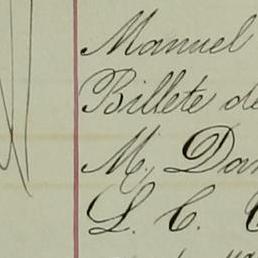 Manuel
Billete de
M, Dan
L. C.